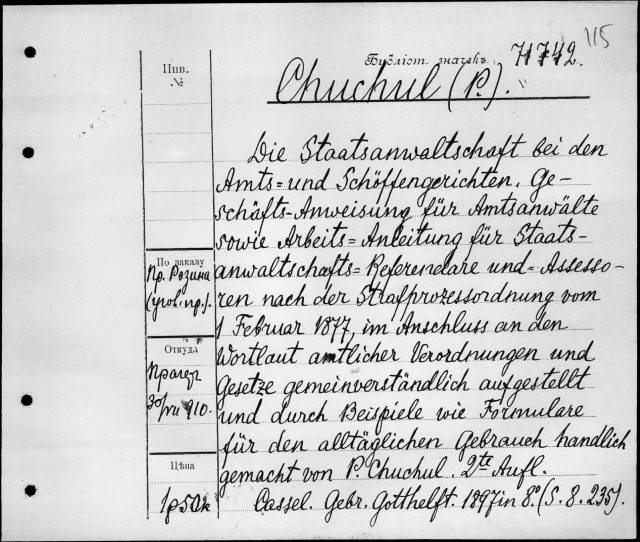 115
Библіот. значекъ. 71742.
Chuchul (P.).
Инв.
№
Die Staatsanwaltschaft bei den
Amts= und Schöffengerichten. Ge-
schäfts-Anweisung für Amtsanwälte
sowie Arbeits=Anleitung für Staats-
anwaltschafts=Referendare und=Assesso-
ren nach der Strafprozessordnung vom
1 Februar 1877, im Anschluss an den
Wortlaut amtlicher Verordnungen und
Gesetze gemeinverständlich aufgestellt
und durch Beispiele wie Formulare
für den alltäglichen Gebrauch handlich
gemacht von P. Chuchul. 2te Aufl.
Cassel. Gebr. Gotthelft. 1897 in 8.° (S. 8. 235).
По заказу
Пр. Розина
(угол. пр.).
Откуда
Прагер
30/VII 910.
Цѣна
1р50к